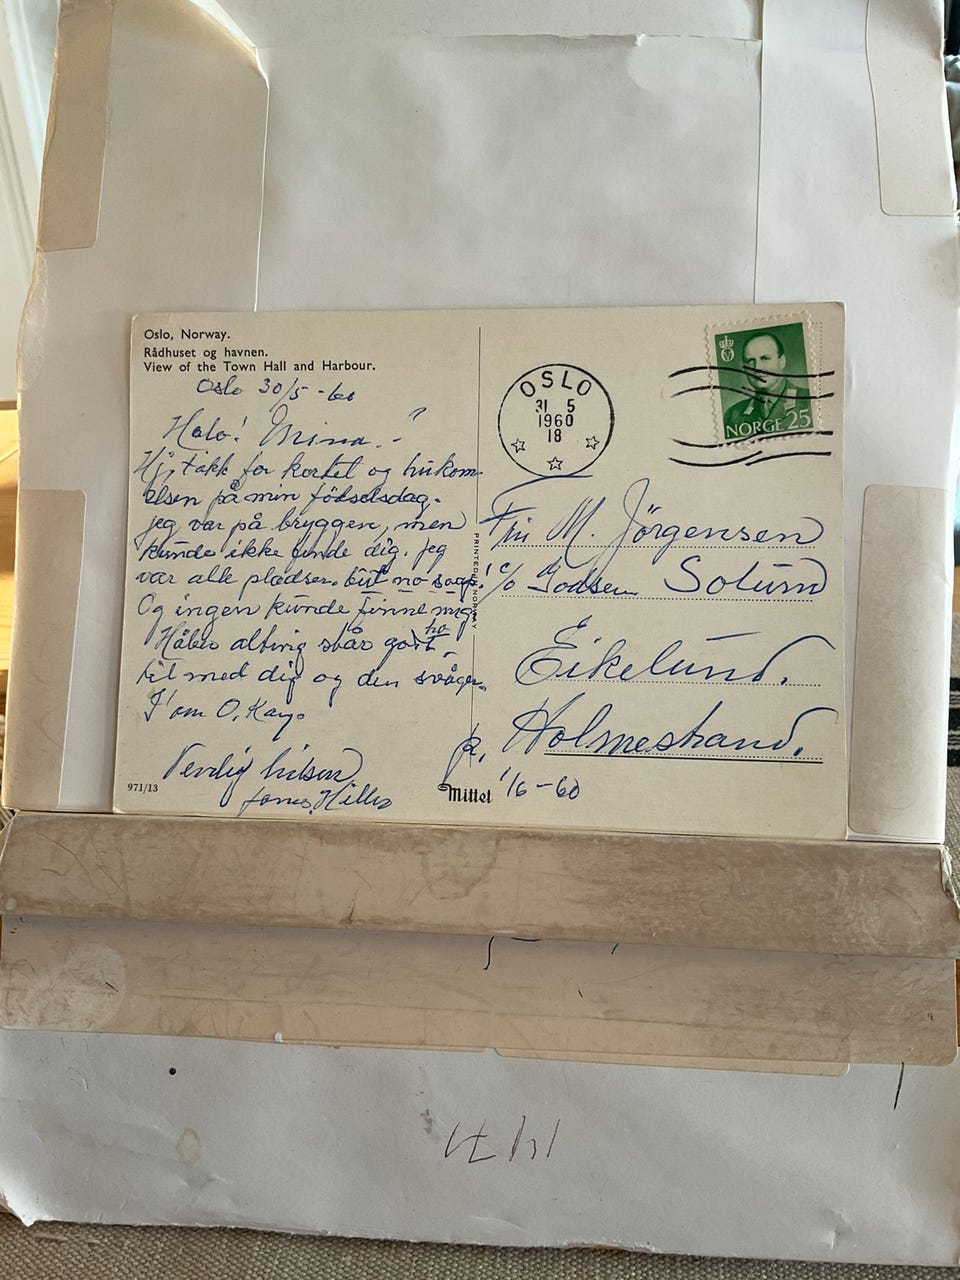 Oslo, Norway.
Rådhuset og havnen.
View of the Town Hall and Harbour.
Oslo 30/5 -60
Halo! Mina. - ?
Hj. takk for kortet og hukom-
elsen på min födselsdag.
jeg var på bryggen, men
kunde ikke finde dig. jeg
var alle pladser. but no sogt.
Og ingen kunde finne mig
Håber alting står godt
to
til med dig og den svåger.
I'am O, Kay.
Venlig hilsen
971/13
PRINTED IN NORWAY
Mittet
OSLO
31 5
1960
18
NORGE 25
M. Jörgensen
c/o Solum
Eikelund.
Holmestrand.
1/6-60